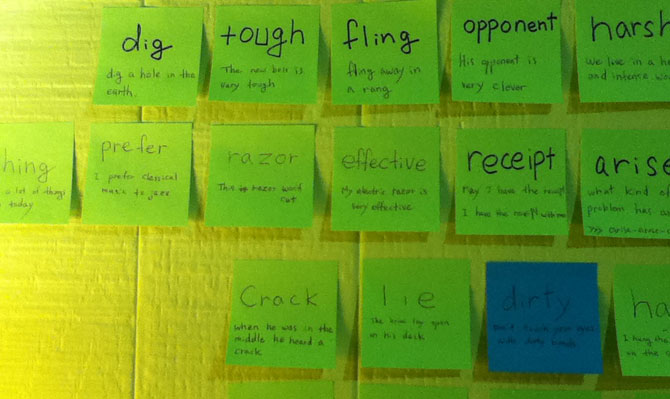 dig
dig a hole in the
earth.
tough
The new boss is
very tough
fling
fling away in
a rang
opponent
His opponent is
very clever
harsh
We live in a
and intense
hing
a lot of things
today
prefer
I prefer classical
music to jazz
razor
This razor won't
cut
effective
My electric razor is
very effective
receipt
May I have the receipt
I have the receipt with me
arise
what kind
problem has
Crack
when he was in the
middle he heard a
crack
lie
open
on his desk
dirty
Don't touch your
with dirty hands
ha
I hang the